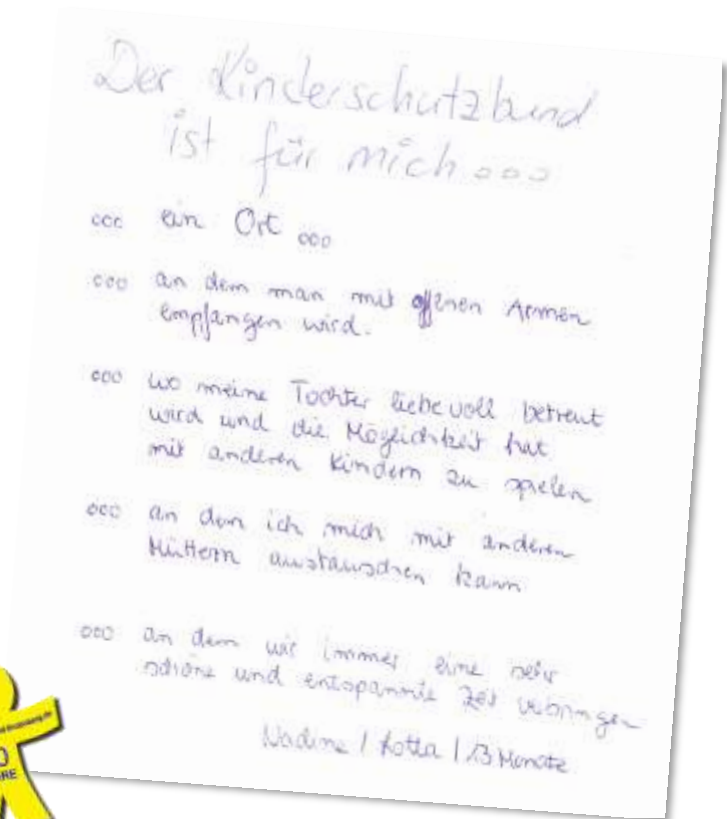 Der Kinderschutzbund
ist für mich ooo
ooo ein Ort ooo
ooo an dem man mit offenen Armen
empfangen wird.
ooo wo meine Tochter liebevoll betreut
wird und die Möglichkeit hat
mit anderen Kindern zu spielen
ooo an dem ich mich mit anderen
Müttern austauschen kann
ooo an dem wir immer eine sehr
schöne und entspannte Zeit verbringen
Nadine / Lotta / 13 Monate